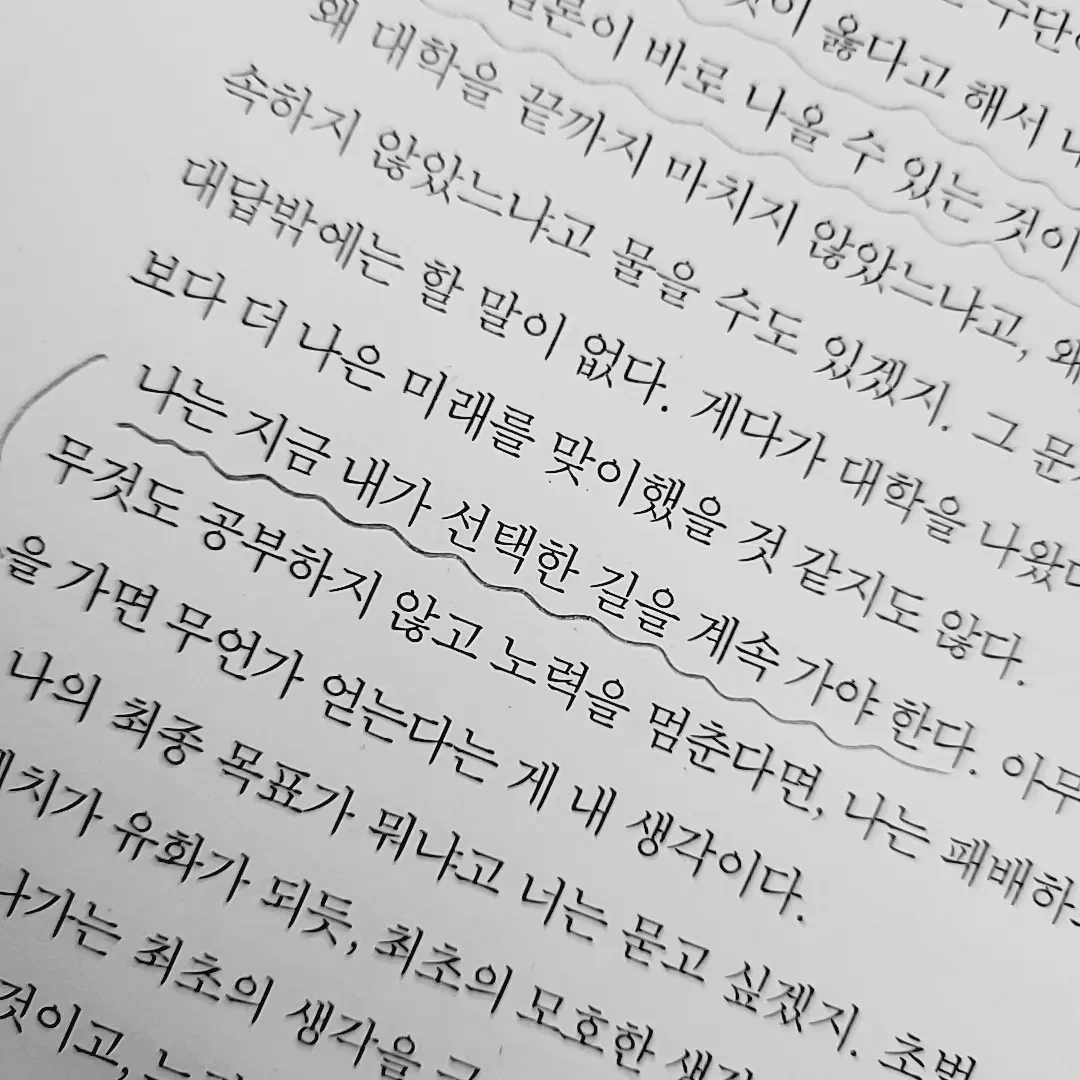 수단
것이 옳다고 해서
결론이 바로 나올 수 있는 것이
왜 대학을 끝까지 마치지 않았느냐고, 왜
속하지 않았느냐고 물을 수도 있겠지. 그
대답밖에는 할 말이 없다. 게다가 대학을 나왔다
보다 더 나은 미래를 맞이했을 것 같지도 않다.
나는 지금 내가 선택한 길을 계속 가야 한다. 아무
무것도 공부하지 않고 노력을 멈춘다면, 나는 패배하
을 가면 무언가 얻는다는 게 내 생각이다.
나의 최종 목표가 뭐냐고 너는 묻고 싶겠지. 초벌
케치가 유화가 되듯, 최초의 모호한 생각
나가는 최초의 생각을
것이고,